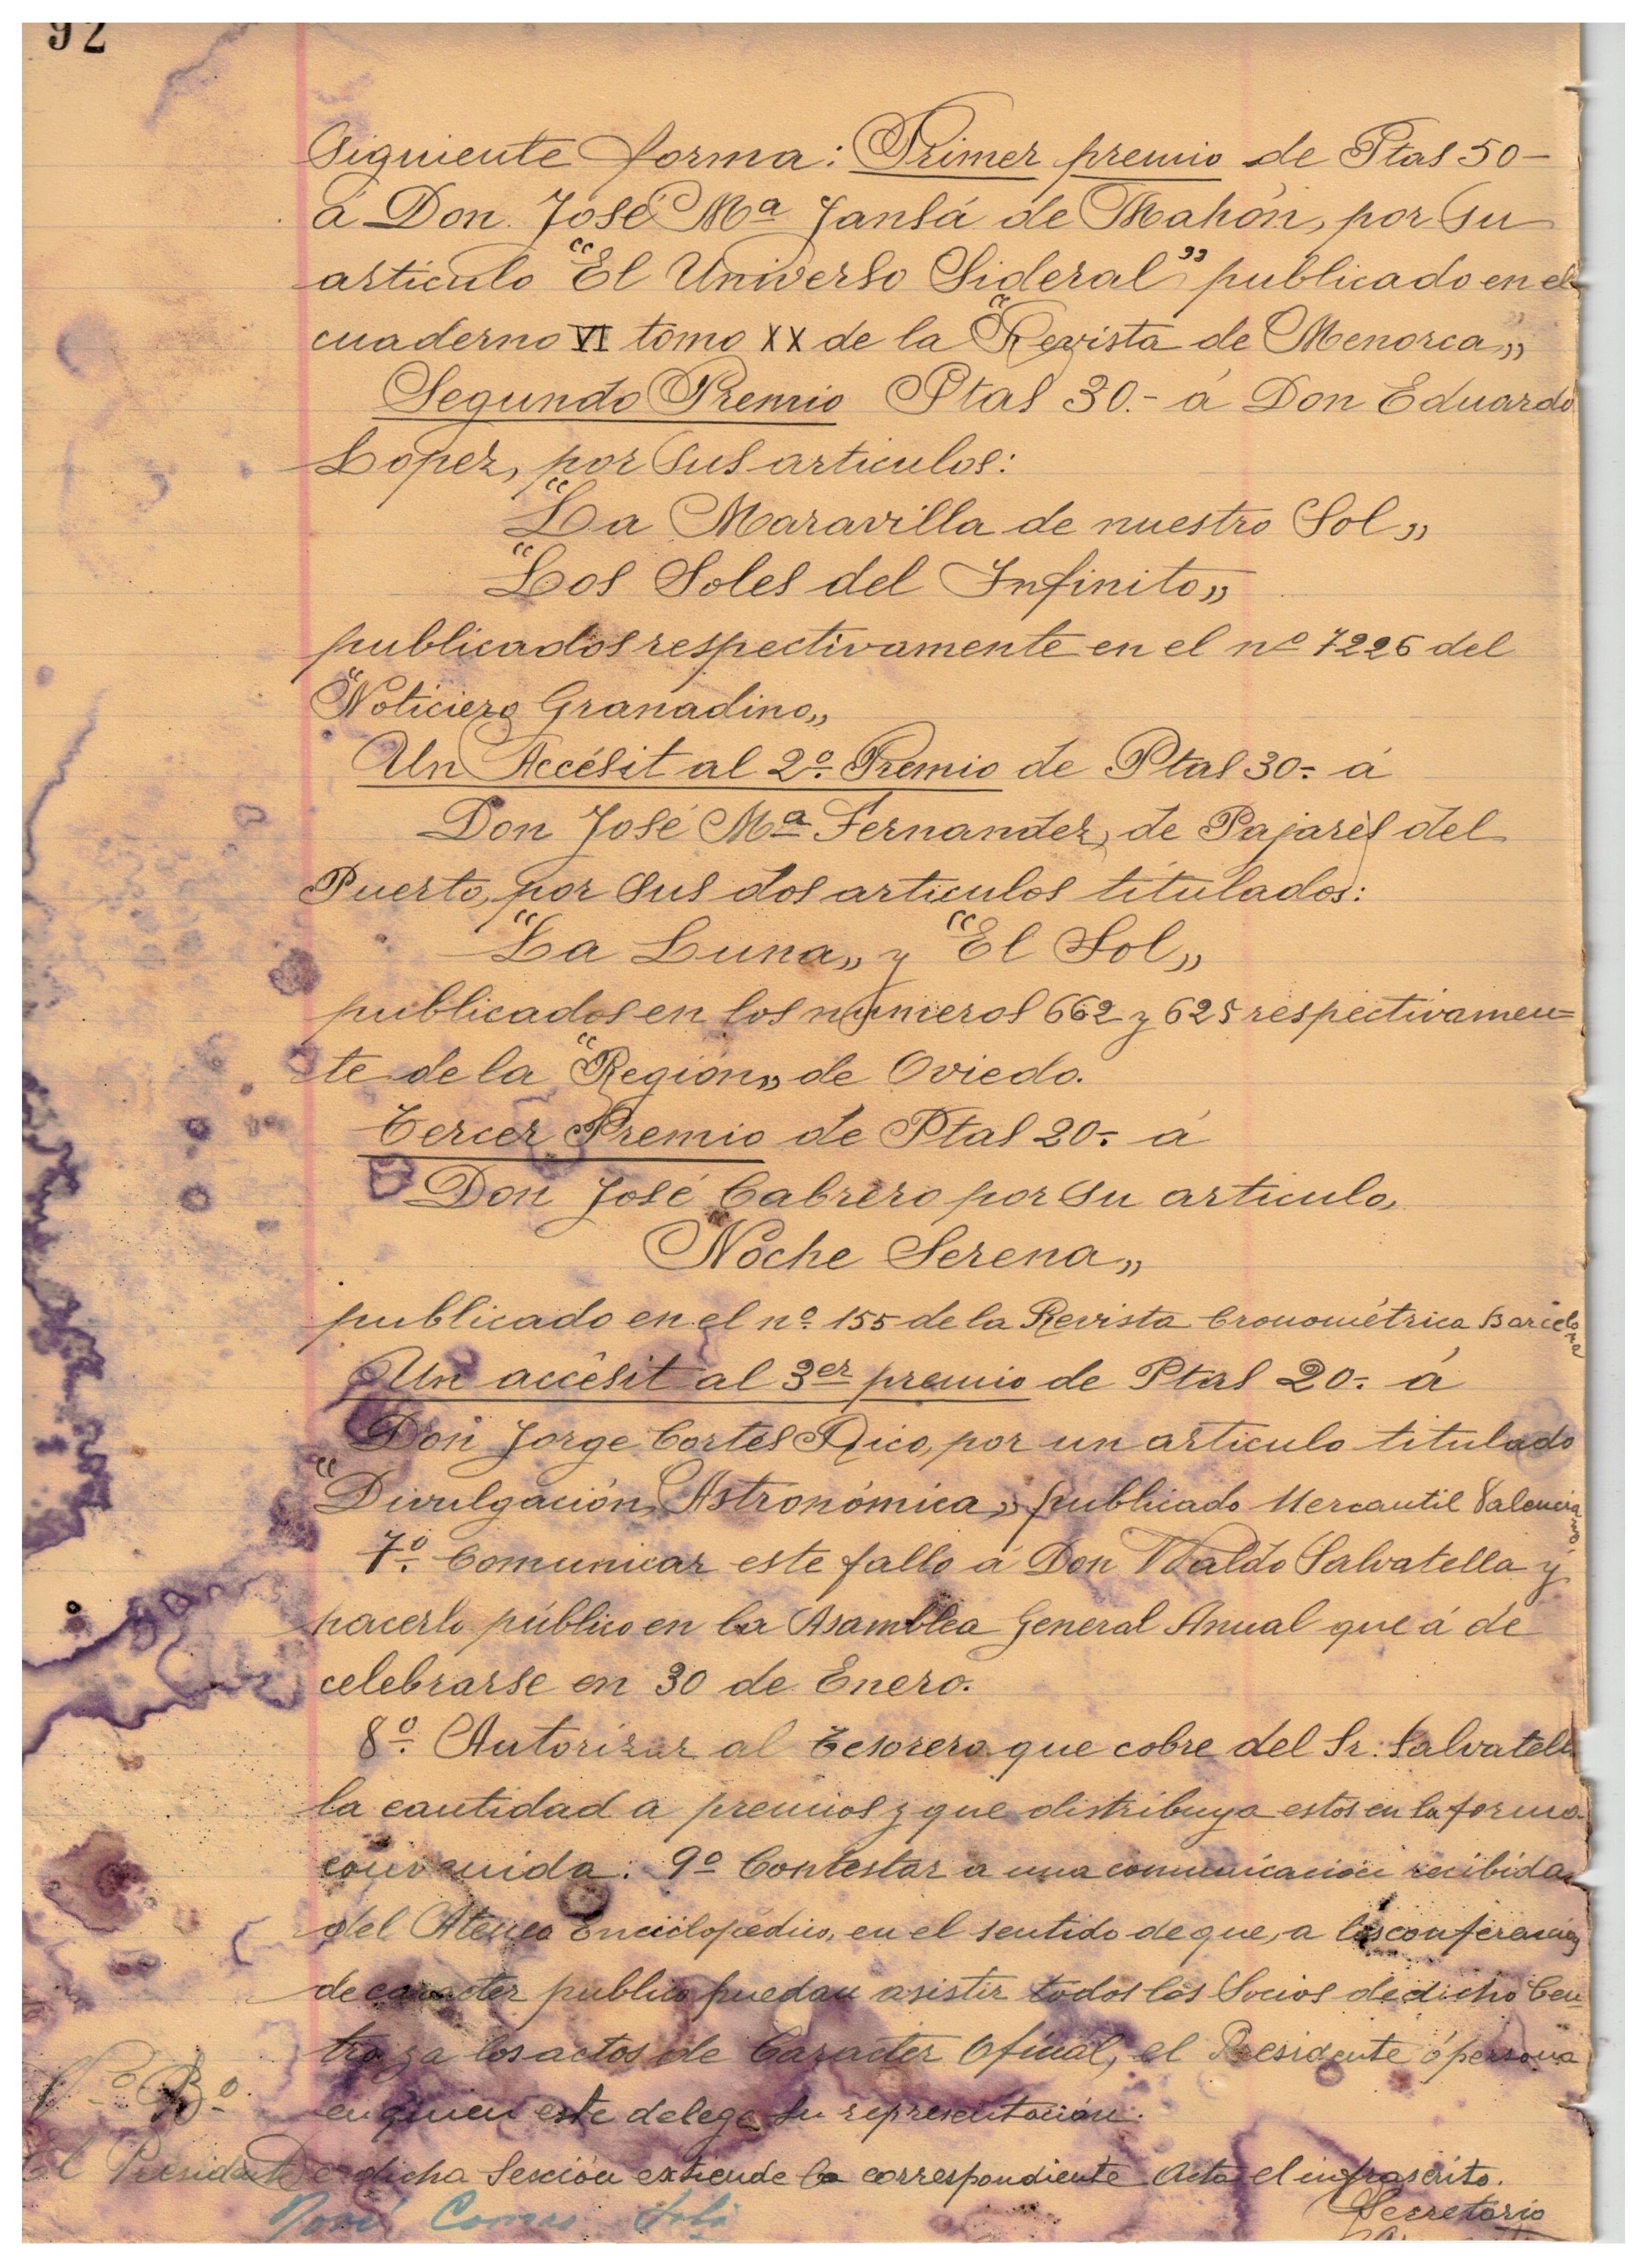 92
siguiente forma: Primer premio de Ptas 50-
á Don José Mª Jansá de Mahón, por su
articulo "El Universo Sideral" publicado en el
cuaderno VI tomo XX de la "Revista de Menorca„
Segundo Premio Ptas 30.- á Don Eduardo
Lopez, por sus articulos:
"La Maravilla de nuestro Sol„
"Los Soles del Infinito„
publicados respectivamente en el nº 7226 del
"Noticiero Granadino„
Un Accésit al 2º Premio de Ptas 30.- á
Don José Mª Fernandez, de Pajares del
Puerto, por sus dos articulos titulados:
"La Luna„ y "El Sol„
publicados en los números 662 y 625 respectivamen=
te de la "Región„ de Oviedo.
Tercer Premio de Ptas 20.- á
Don José Cabrero por su articulo,
Noche Serena„
publicado en el nº 155 de la Revista Cronométrica Barcelona
Un accésit al 3er premio de Ptas 20.- á
Don Jorge Cortés Rico, por un articulo titulado
"Divulgación Astronómica„ publicado Mercantil Valenciano
7º Comunicar este fallo á Don Waldo Salvatella y
hacerlo público en la Asamblea General Anual que á de
celebrarse en 30 de Enero.
8º Autorizar al Tesorero que cobre del Sr. Salvatella
la cantidad a premios y que distribuya estos en la forma
convenida. 9º Contestar a una comunicación recibida
del Ateneo Enciclopédico, en el sentido de que, a las conferencias
de caracter publico puedan asistir todos los Socios de dicho Cen-
tro y a los actos de Caracter Oficial, el Presidente ó persona
en quien este delege su representación.
Vº Bº
El Presidente
dicha Sesción extiende la correspondiente Acta el infrascrito.
Secretario
José Comas Solà